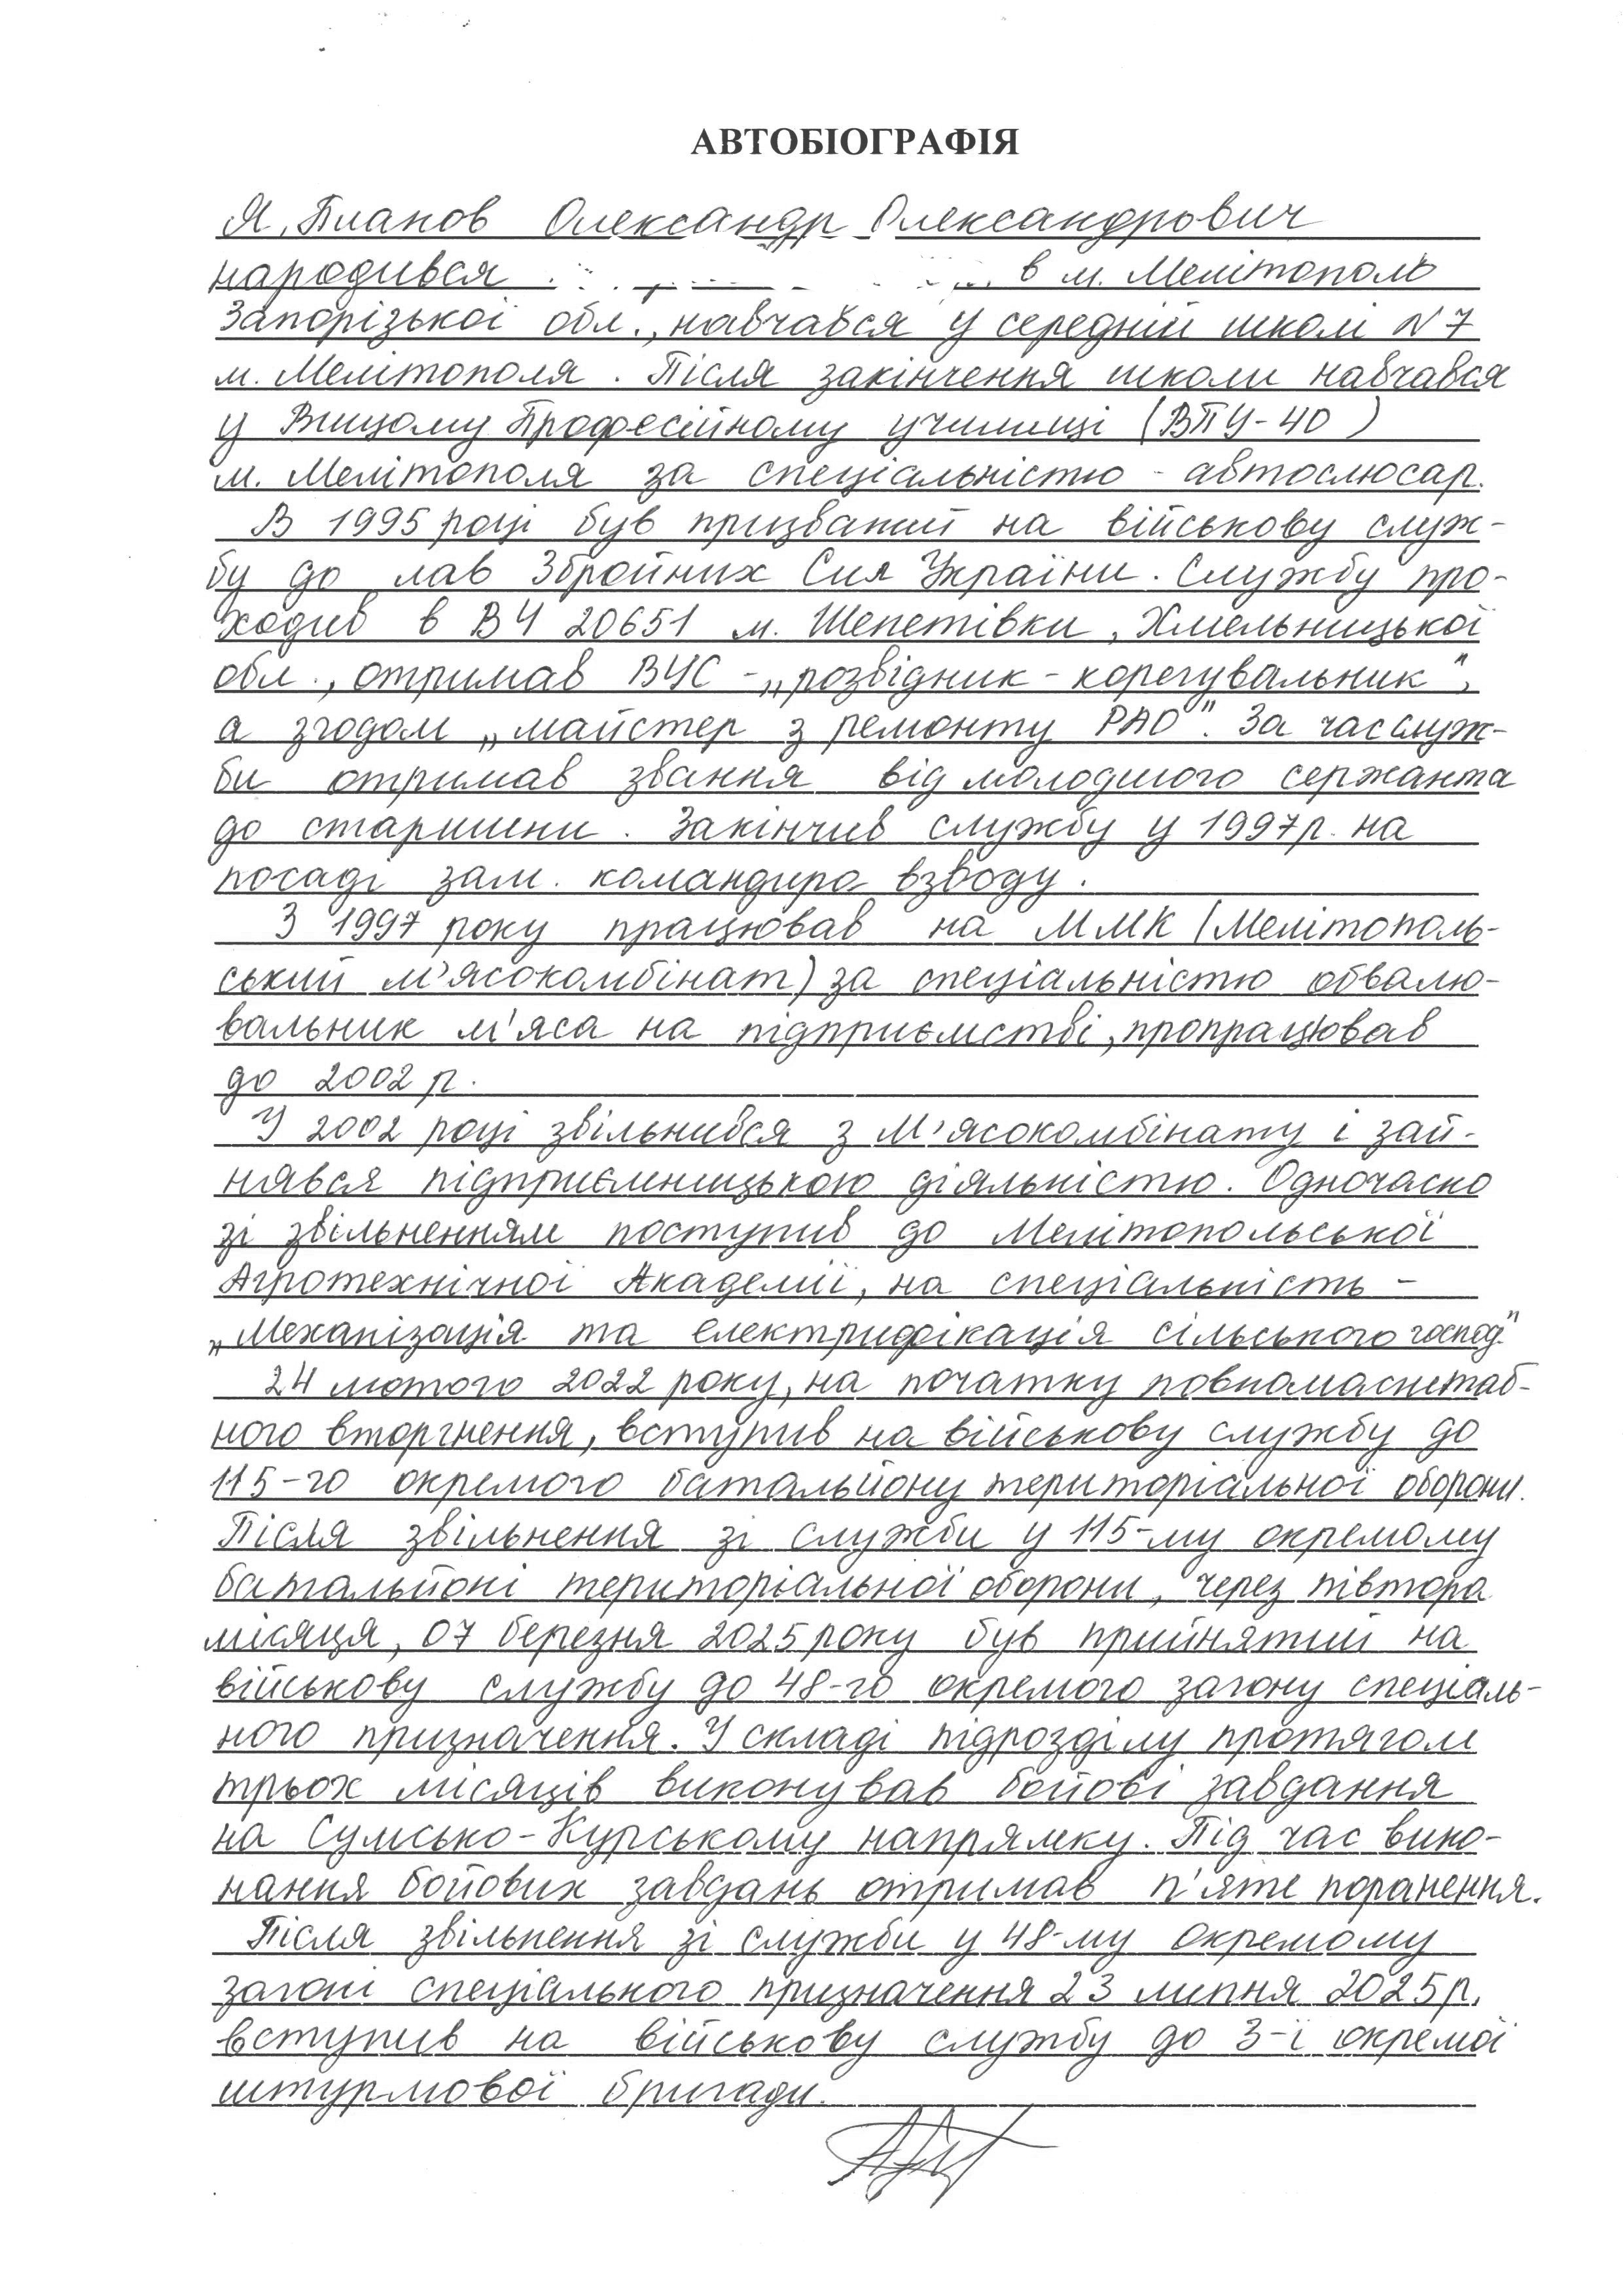 АВТОБІОГРАФІЯ
Я, Планов Олександр Олександрович
народився в м. Мелітополь
Запорізької обл., навчався у середній школі №7
м. Мелітополя. Після закінчення школи навчався
у Вищому Професійному училищі (ВПУ-40)
м. Мелітополя за спеціальністю - автослюсар.
В 1995 році був призваний на військову служ-
бу до лав Збройних Сил України. Службу про-
ходив в ВЧ 20651 м. Шепетівки, Хмельницької
обл., отримав ВУС - „розвідник-корегувальник",
а згодом „майстер з ремонту РАО". За час служ-
би отримав звання від молодшого сержанта
до старшини. Закінчив службу у 1997р. на
посаді зам. командира взводу.
З 1997 року працював на ММК (Мелітополь-
ський м'ясокомбінат) за спеціальністю обвалю-
вальник м'яса на підприємстві, пропрацював
до 2002 р.
У 2002 році звільнився з М'ясокомбінату і зай-
нявся підприємницькою діяльністю. Одночасно
зі звільненням поступив до Мелітопольської
Агротехнічної Академії, на спеціальність -
„Механізація та електрифікація сільського господ."
24 лютого 2022 року, на початку повномасштаб-
ного вторгнення, вступив на військову службу до
115-го окремого батальйону територіальної оборони.
Після звільнення зі служби у 115-му окремому
батальйоні територіальної оборони, через півтора
місяця, 07 березня 2025 року був прийнятий на
військову службу до 48-го окремого загону спеціаль-
ного призначення. У складі підрозділу протягом
трьох місяців виконував бойові завдання
на Сумсько-Курському напрямку. Під час вико-
нання бойових завдань отримав п'яте поранення.
Після звільнення зі служби у 48-му окремому
загоні спеціального призначення 23 липня 2025р,
вступив на військову службу до 3-ї окремої
штурмової бригади.